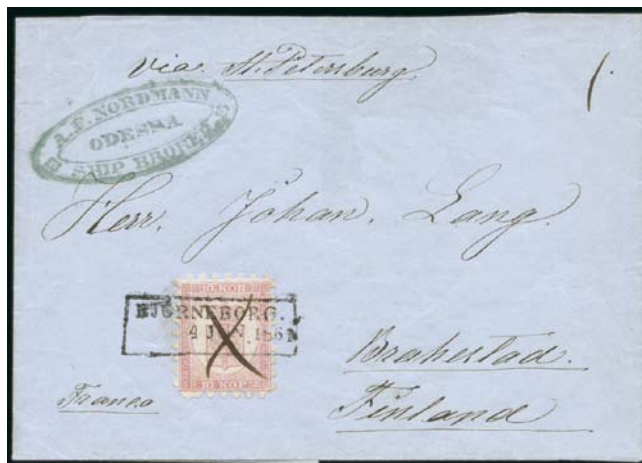 via. St. Petersburg.
A. F. NORDMANN
ODESSA
SHIP BROKER
Herr. Johan. Lang.
10 KOP
BJÖRNEBORG.
4 JUN 186
10 KOP
Brahestad.
Franco
Finland